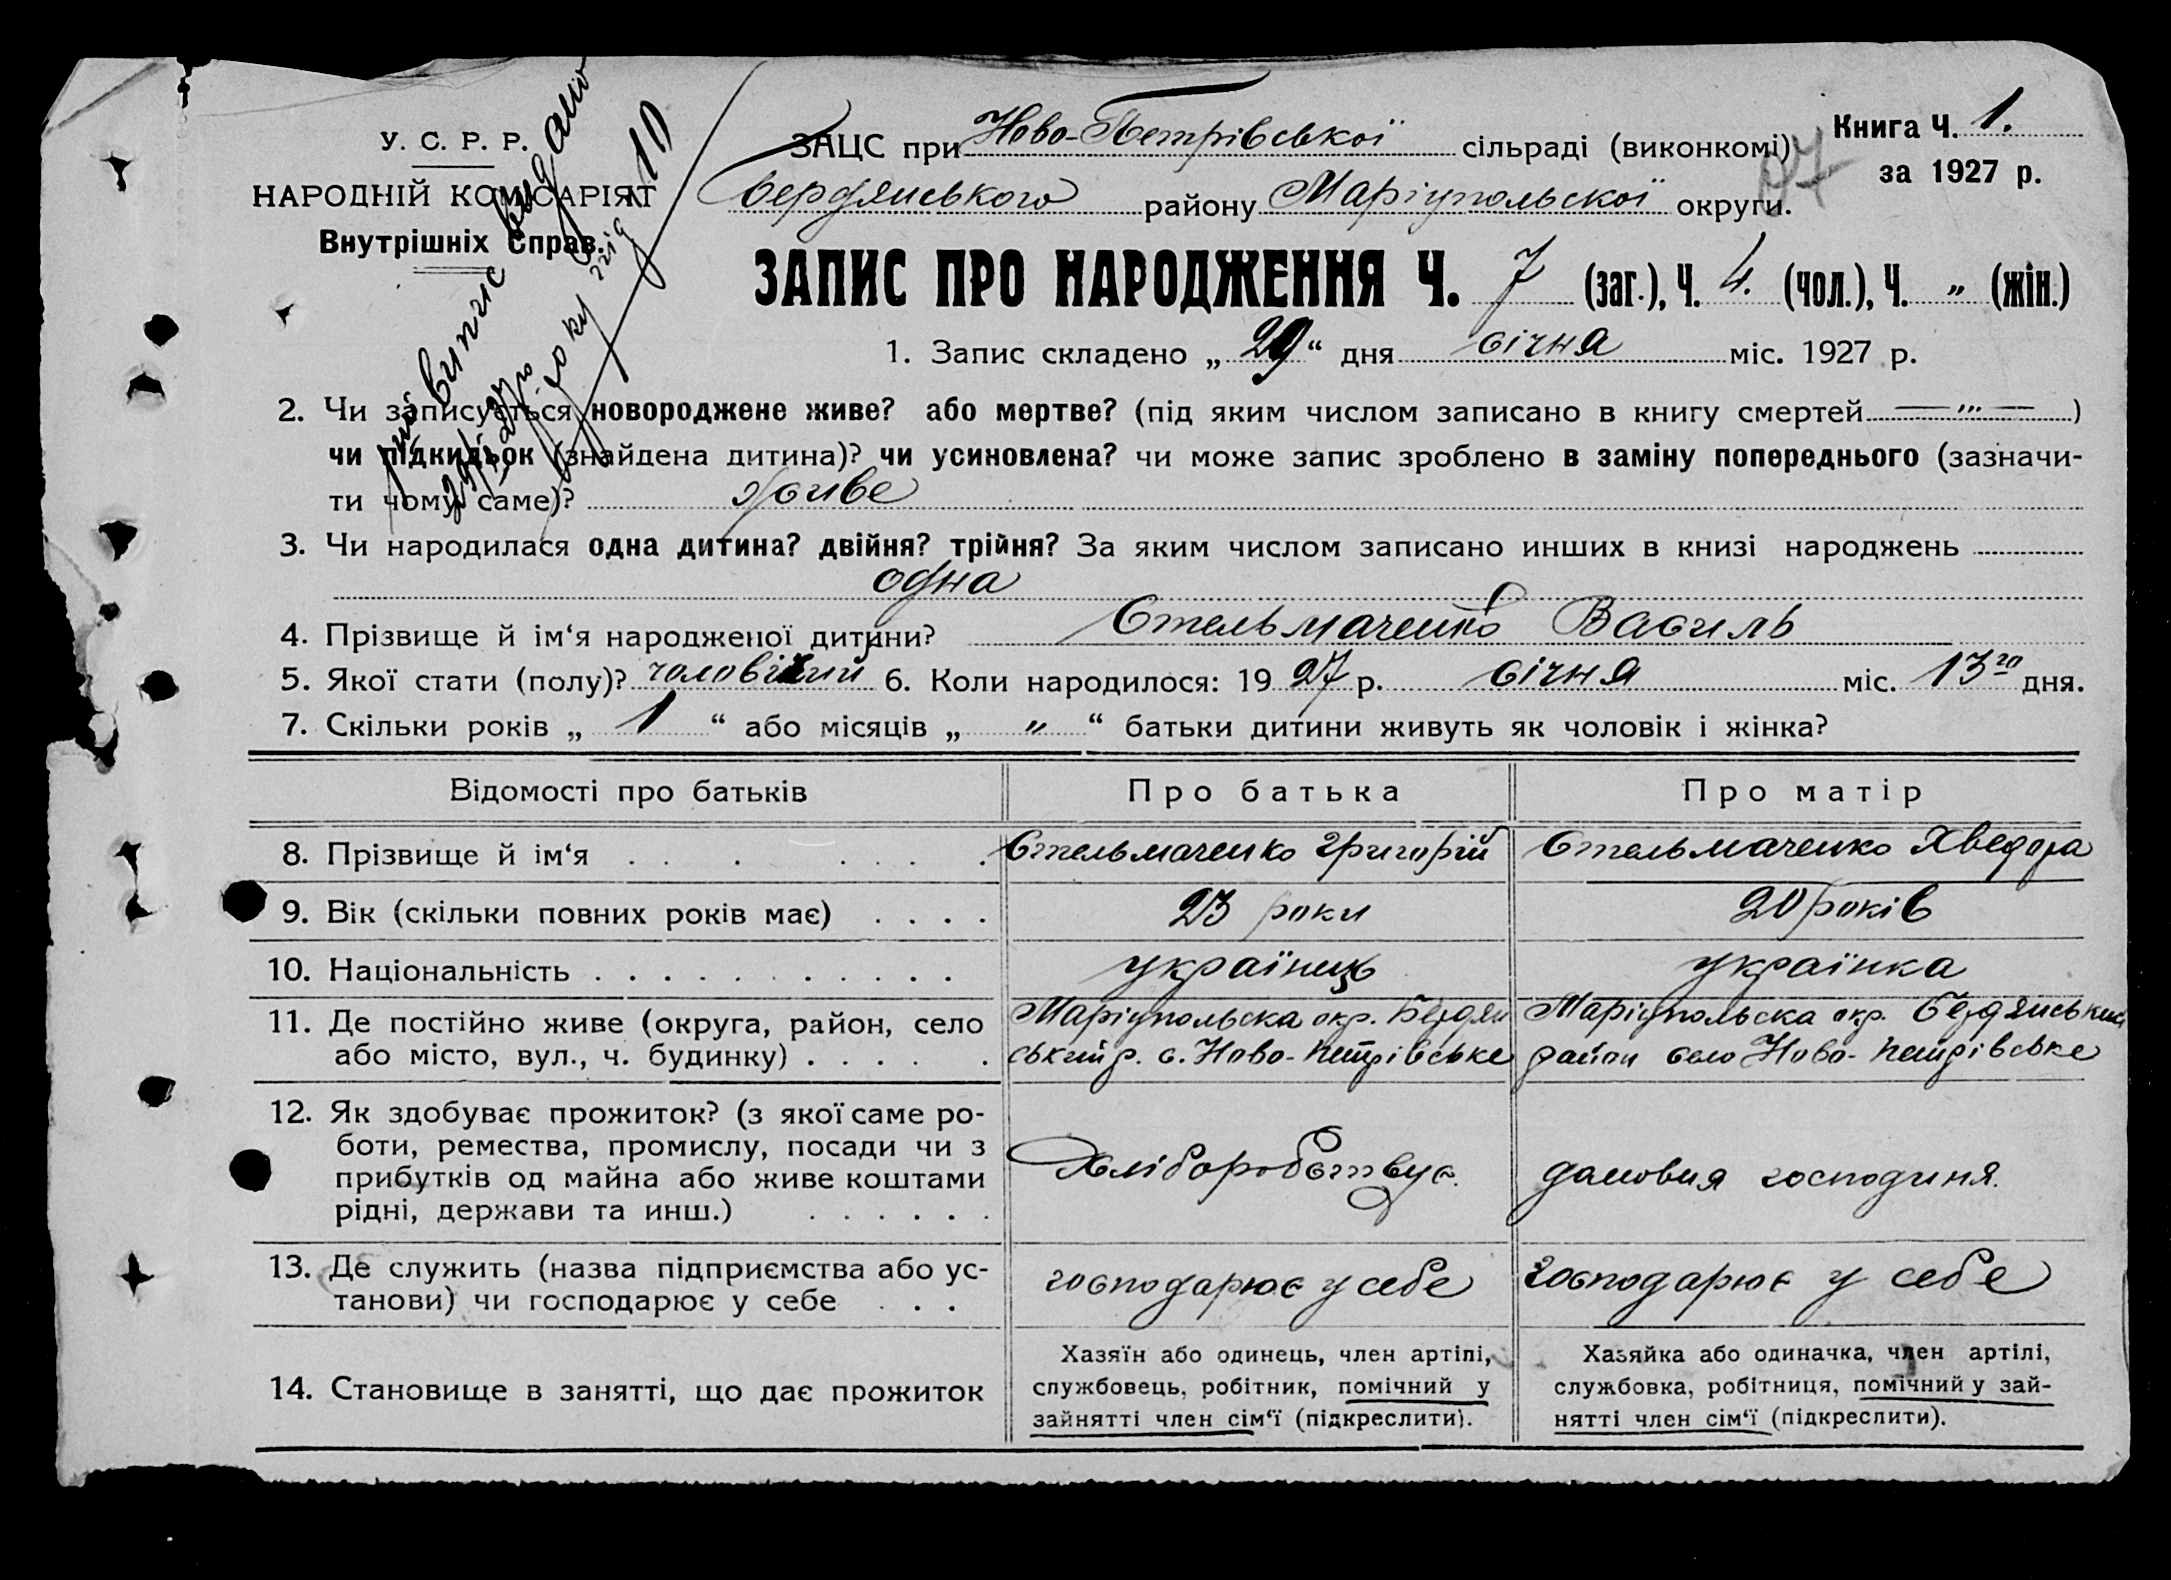 У. С. Р. Р.
НАРОДНІЙ КОМІСАРІЯТ
Внутрішніх Справ.
випис видано
року під 10
ЗАЦС при Ново-Петрівської сільраді (виконкомі)
Бердянського району Маріупольскої округи.
Книга Ч. 1.
за 1927 р.
97
ЗАПИС ПРО НАРОДЖЕННЯ Ч. 7 (заг.), Ч. 4. (чол.), Ч. „ (жін.)
1. Запис складено „ 29 “ дня січня міс. 1927 р.
2. Чи записується новороджене живе? або мертве? (під яким числом записано в книгу смертей — „ — )
чи підкидьок (знайдена дитина)? чи усиновлена? чи може запис зроблено в заміну попереднього (зазначи-
ти чому саме)? живе
3. Чи народилася одна дитина? двійня? трійня? За яким числом записано инших в книзі народжень
одна
4. Прізвище й ім‘я народженої дитини? Стельмаченко Василь
5. Якої стати (полу)? чоловічий 6. Коли народилося: 19 27 р. січня міс. 13го дня.
7. Скільки років „ 1 “ або місяців „ „ “ батьки дитини живуть як чоловік і жінка?
Відомості про батьків Про батька Про матір
8. Прізвище й ім‘я Стельмаченко Григорій Стельмаченко Хведора
9. Вік (скільки повних років має) 23 роки 20 років
10. Національність українець українка
11. Де постійно живе (округа, район, село Маріупольска окр. Бердян Маріупольска окр. Бердянський
або місто, вул., ч. будинку) ський р. с. Ново-Петрівське район село Ново-Петрівське
12. Як здобуває прожиток? (з якої саме ро-
боти, ремества, промислу, посади чи з
прибутків од майна або живе коштами Хліборобствує. домовня господиня.
рідні, держави та инш.)
13. Де служить (назва підприємства або ус-
танови) чи господарює у себе господарює у себе господарює у себе
14. Становище в занятті, що дає прожиток
Хазяїн або одинець, член артілі,
службовець, робітник, помічний у
зайнятті член сім‘ї (підкреслити).
Хазяйка або одиначка, член артілі,
службовка, робітниця, помічний у зай-
нятті член сім‘ї (підкреслити).